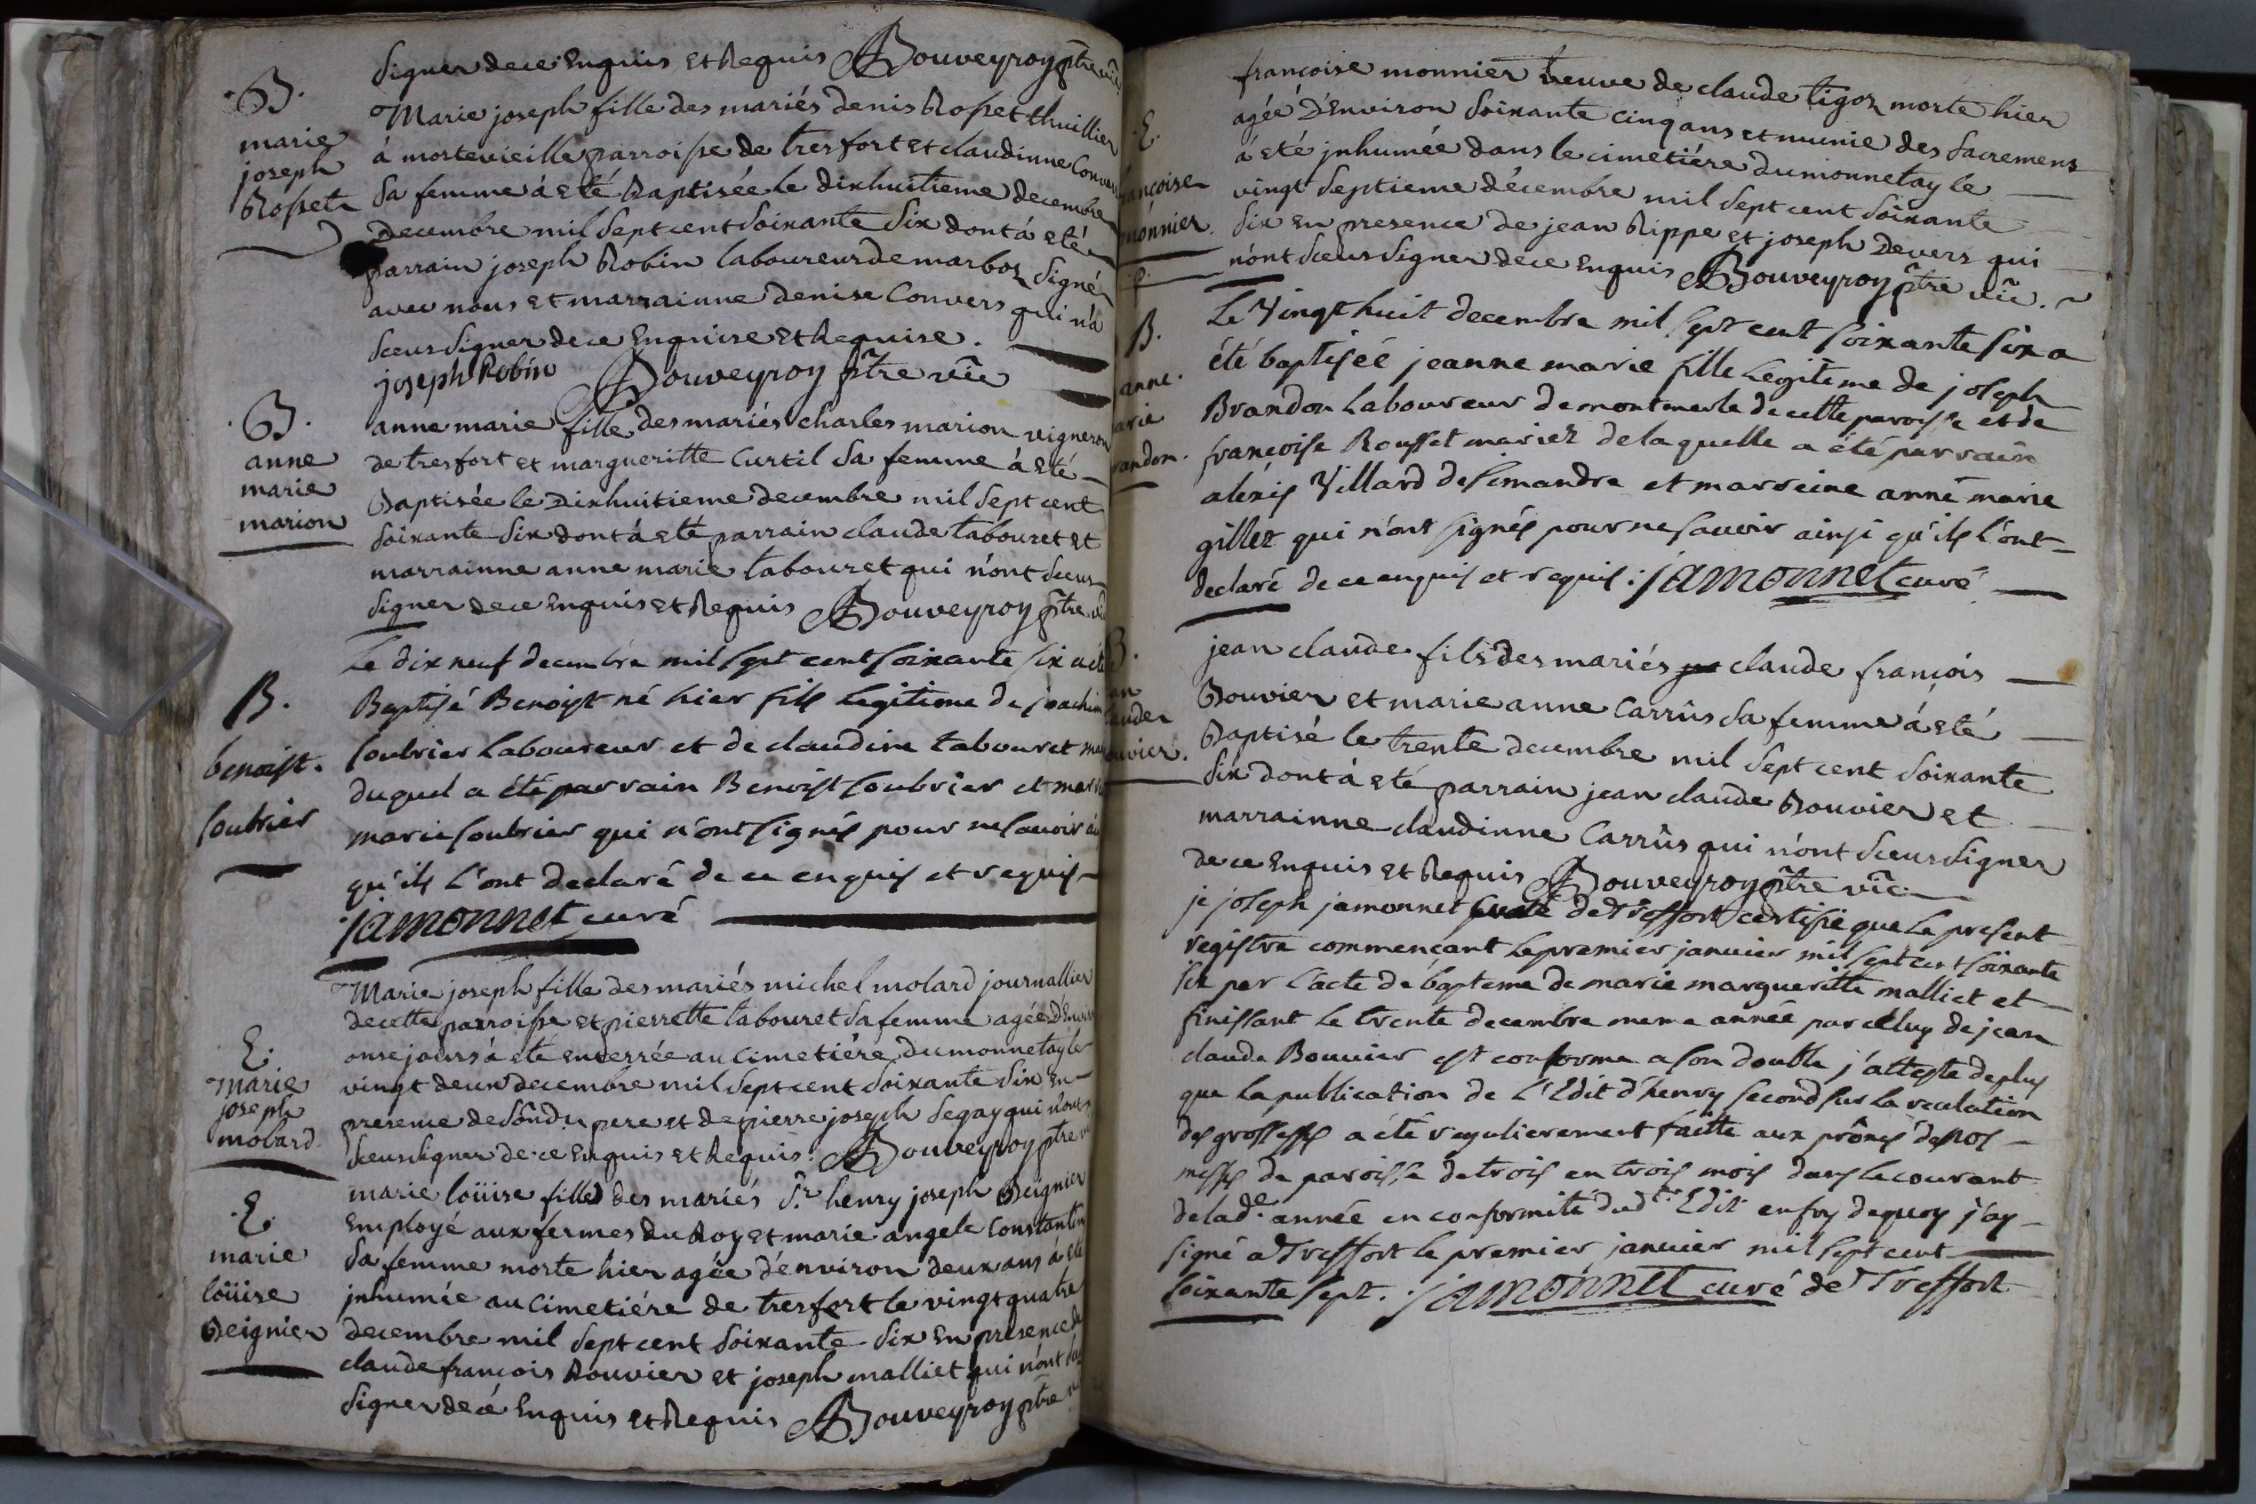 signer de ce Enquis et Requis Bouveyroy ptre vic
.B.
marie
joseph
Rosset
Marie joseph fille des mariés denis Rosset thuillier
á mortevieille parroisse de tresfort et claudinne Convers
Sa femme á eté Baptisée le dixhuitieme decembre
Decembre mil sept cent Soixante Six dont á eté
parrain joseph Robin laboureur de marboz Signé
avec nous et marrainne denise Convers qui n'a
sceus signer de ce Enquise et Requise.
joseph Robin Bouveyroy ptre vic
.B.
anne
marie
marion
anne marie fille des mariés charles marion vigneron
de tresfort et margueritte Curtil Sa femme á eté
Baptisée le Dixhuitieme decembre mil sept cent
soixante Six dont á eté parrain claude tabouret et
marrainne anne marie tabouret qui n'ont sceus
signer de ce Enquis et Requis Bouveyroy ptre vic
B.
benoist.
soubrier
Le dix neuf decembre mil sept cent soixante six a eté
Baptisé Benoist né hier fils Legitime de joachim
soubrier Laboureur et de claudine tabouret
duquel a été parrain Benoist soubrier et
marie soubrier qui n'ont signés pour ne savoir
qu'ils l'ont declaré de ce enquis et requis
jamonnet curé
E.
Marie
joseph
molard
Marie joseph fille des mariés michel molard journallier
de cette parroisse et pierrette tabouret Sa femme agée D'Environ
onse jours á eté enterrée au Cimetiére du monnetay le
vingt deux decembre mil sept cent Soixante Six en
presence de Sondit pere et de pierre joseph Segay qui n'ont
sceus signer de ce Enquis et Requis. Bouveyroy ptre
.E.
marie
loüise
Beignier
marie loüise fille des mariés Sr. henry joseph Beignier
Employé aux fermes du Roy et marie angele Constantin
Sa femme morte hier agée d'environ deux ans á eté
jnhumée au Cimetiére de tresfort le vingt quatre
decembre mil sept cent soixante Six En presence de
claude françois Bouvier et joseph malliet qui n'ont
signer de ce Enquis et Requis Bouveyroy ptre
.E.
ançoise
monnier.
françoise monnier veuve de claude tigoz morte hier
agée D'Environ Soixante cinq ans et munie des Sacremens
á eté jnhumée dans le cimetiére du monnetay le
vingt Septieme décembre mil sept cent soixante
Six en presence de jean Rippe et joseph Devers qui
n'ont sceus signer de ce Enquis Bouveyroy ptre vic.
B.
anne.
arie
randon.
Le Vingt huit decembre mil sept cent soixante six a
été baptisée jeanne marie fille Legitime de joseph
Brandon Laboureur de montmerle de cette paroisse et de
françoise Rousset mariez de laquelle a été parrain
alexis Villard de simandre et marreine anne marie
gillet qui n'ont signés pour ne savoir ainsi qu'ils l'ont
declaré de ce enquis et requis: jamonnet curé
B.
an
aude
ouvier.
jean claude fils des mariés claude françois
Bouvier et marie anne Carrûs Sa femme á eté
Baptisé le trente decembre mil sept cent soixante
Six dont á eté parrain jean claude Bouvier et
marrainne claudinne Carrûs qui n'ont sceus signer
de ce Enquis et Requis Bouveyroy ptre vic.
je joseph jamonnet Curé de Treffort certifie que Le present
registre commençant Le premier janvier mil sept cent soixante
six par l'acte de bapteme de marie marguerite malliet et
finissant Le trente decembre meme année par celuy de jean
claude Bouvier est conforme a son double j'atteste de plus
que la publication de l'Edit d'henry second sur la recelation
des grossesses a été regulierement faitte aux prônes de nos
messes de paroisse de trois en trois mois dans le courant
de lade. année en conformité dudt. Edit en foy de quoy j'ay
signé a Treffort le premier janvier mil sept cent
soixante sept. jamonnet curé de Treffort